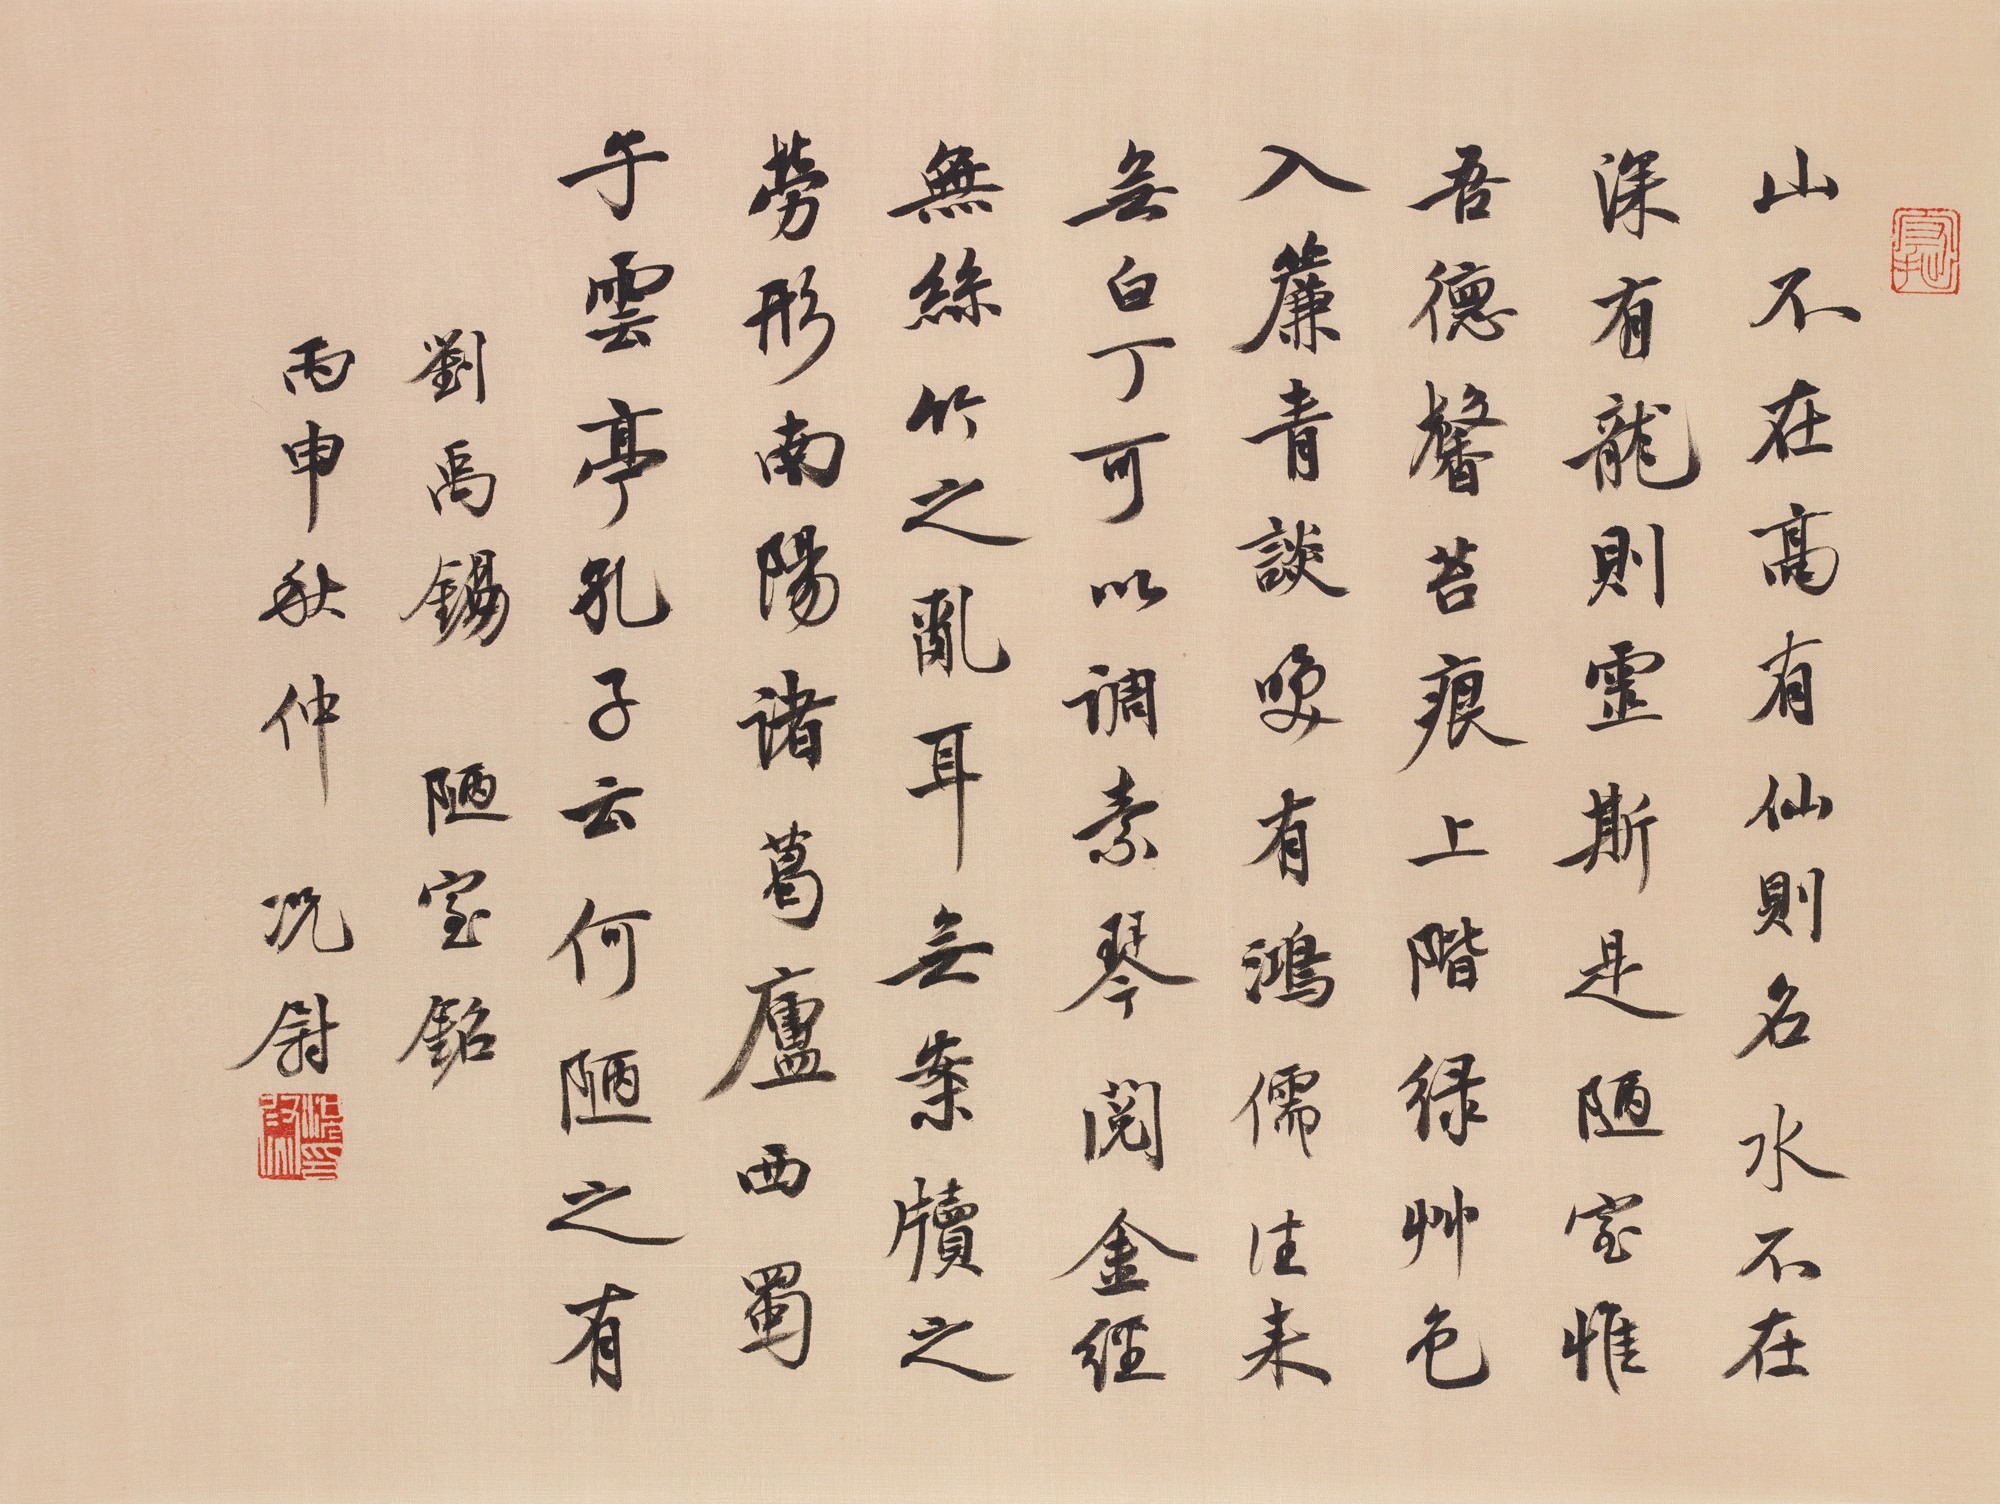 山不在高有仙則名水不在
深有龍則霊斯是陋室惟
吾德馨苔痕上階緑艸色
入簾青談咲有鴻儒往来
无白丁可以調素琴閱金經
無絲竹之亂耳无案牘之
勞形南陽諸葛廬西蜀
子雲亭孔子云何陋之有
劉禹錫 陋室銘
丙申秋仲 况尉